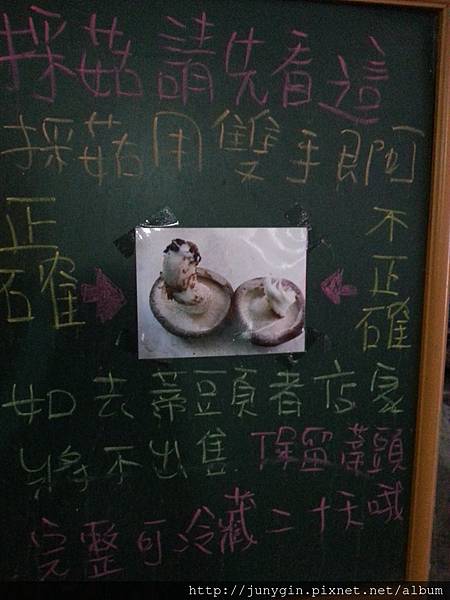 採菇請先看這
採菇用雙手即可
正確
不正確
如去蒂頭者店家
將不出售 保留蒂頭
完整可冷藏二十天哦
http://junygin.pixnet.net/album